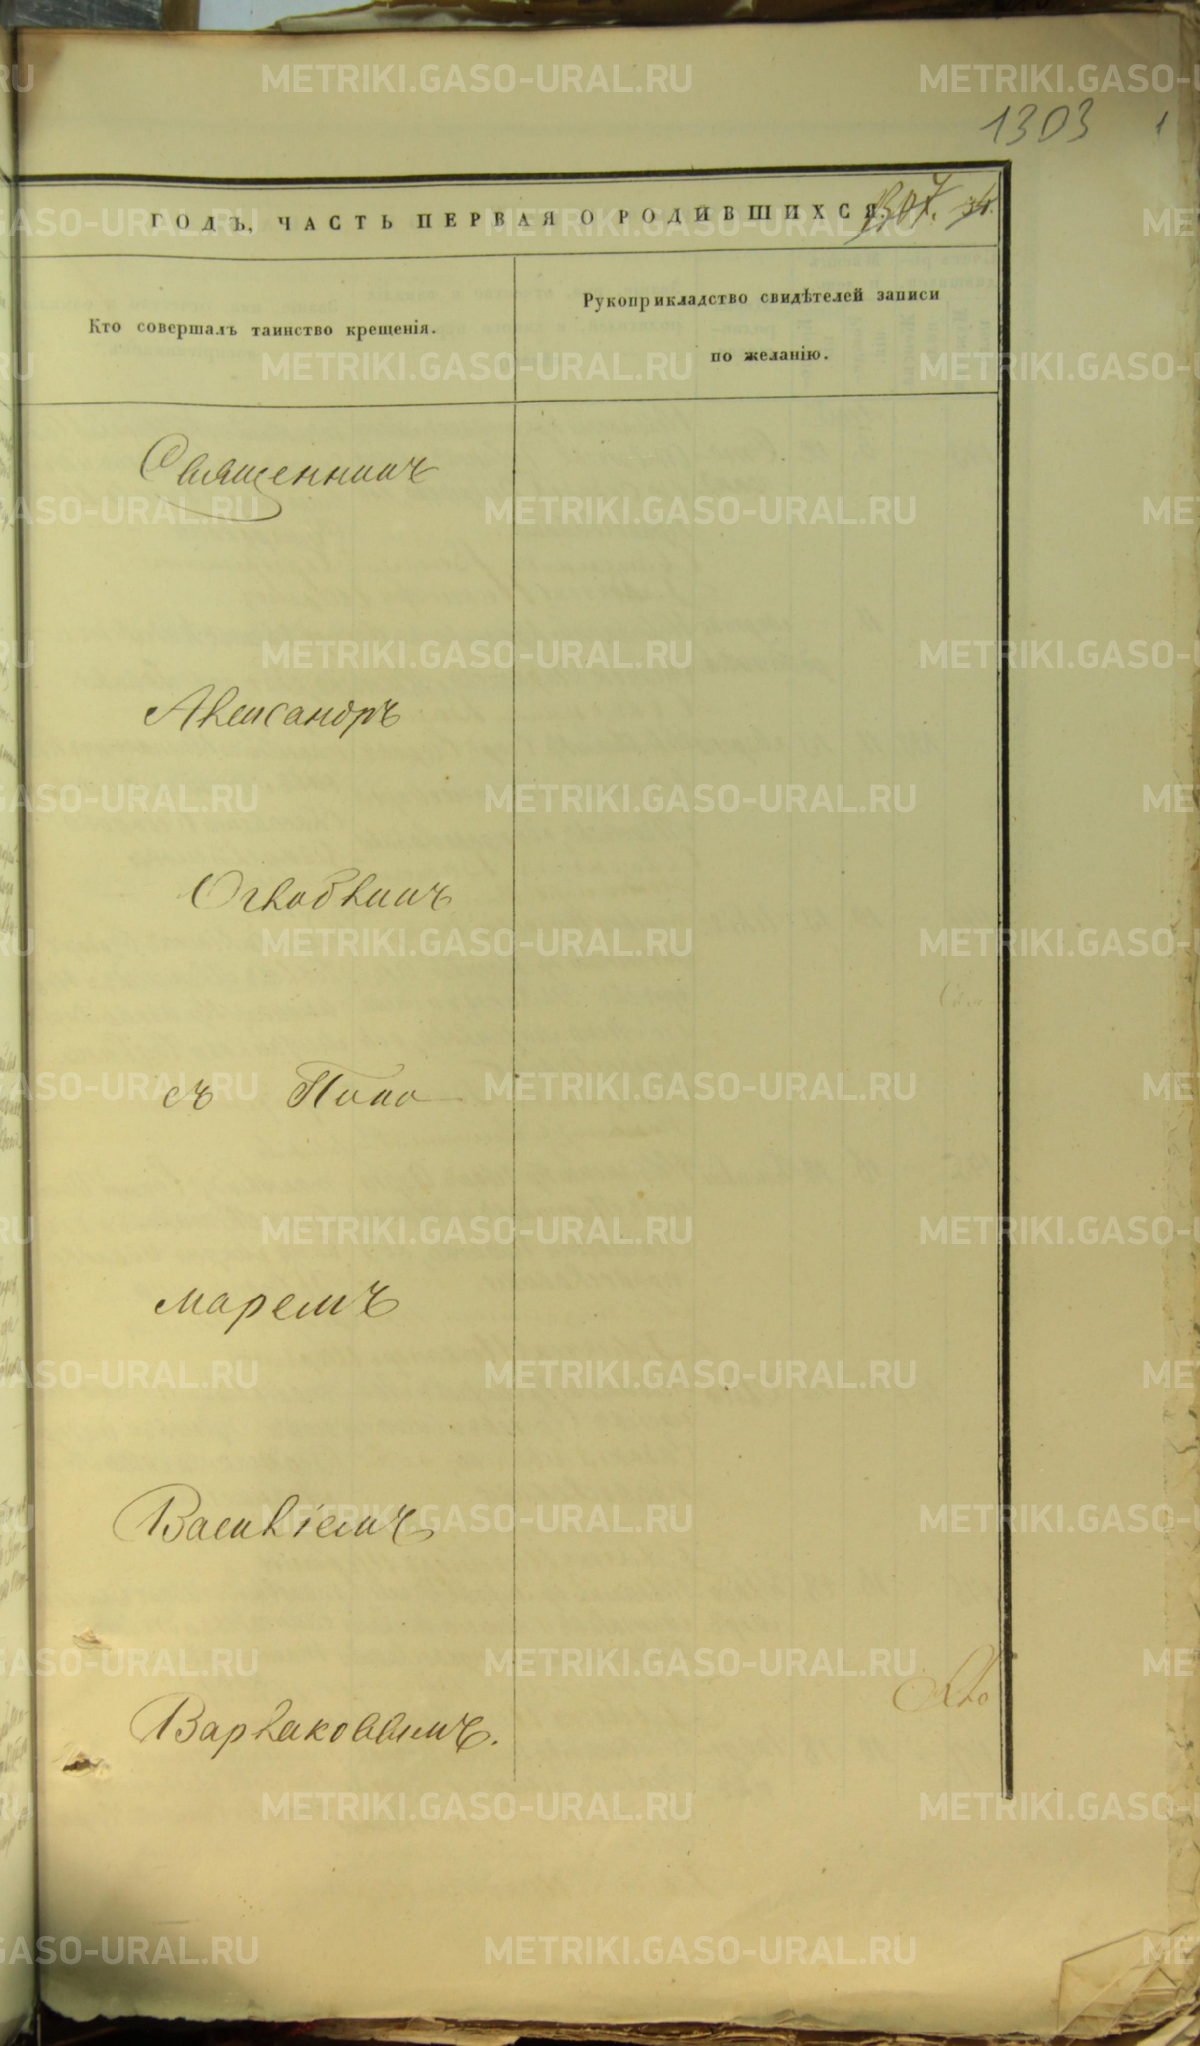 1303
ГОДЪ, ЧАСТЬ ПЕРВАЯ О РОДИВШИХСЯ.
Кто совершалъ таинство крещенія.
Рукоприкладство свидѣтелей записи
по желанію.
Священникъ
Александръ
Оглоблинъ
съ Поно
маремъ
Василіемъ
Варлаковымъ.
METRIKI.GASO-URAL.RU